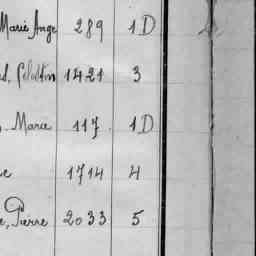 Marie Ange 289 1D
1421 3
Marie 117 1D
1714 4
Pierre 2033 5